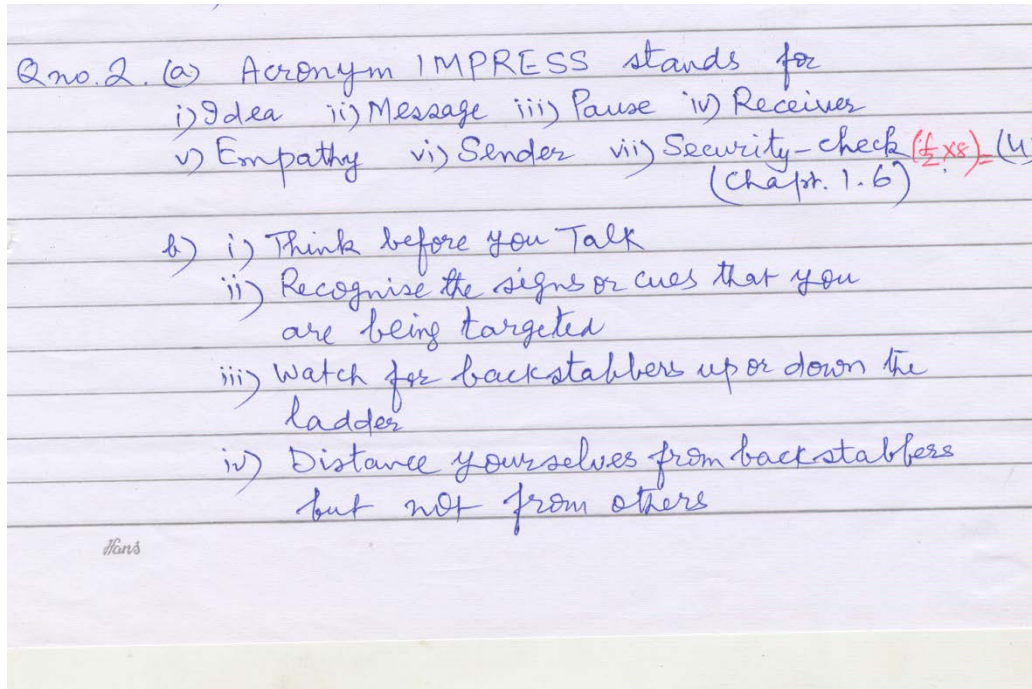 Q no. 2. (a) Acronym IMPRESS stands for
i) Idea ii) Message iii) Pause iv) Receiver
v) Empathy vi) Sender vii) Security-check (½ x8)=(4)
(Chapt. 1.6)
b) i) Think before you Talk
ii) Recognise the signs or cues that you
are being targeted
iii) Watch for backstabbers up or down the
ladder
iv) Distance yourselves from backstabbers
but not from others
Hans